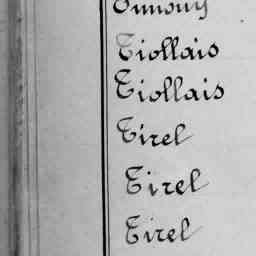 Tiollais
Tiollais
Tirel
Tirel
Tirel